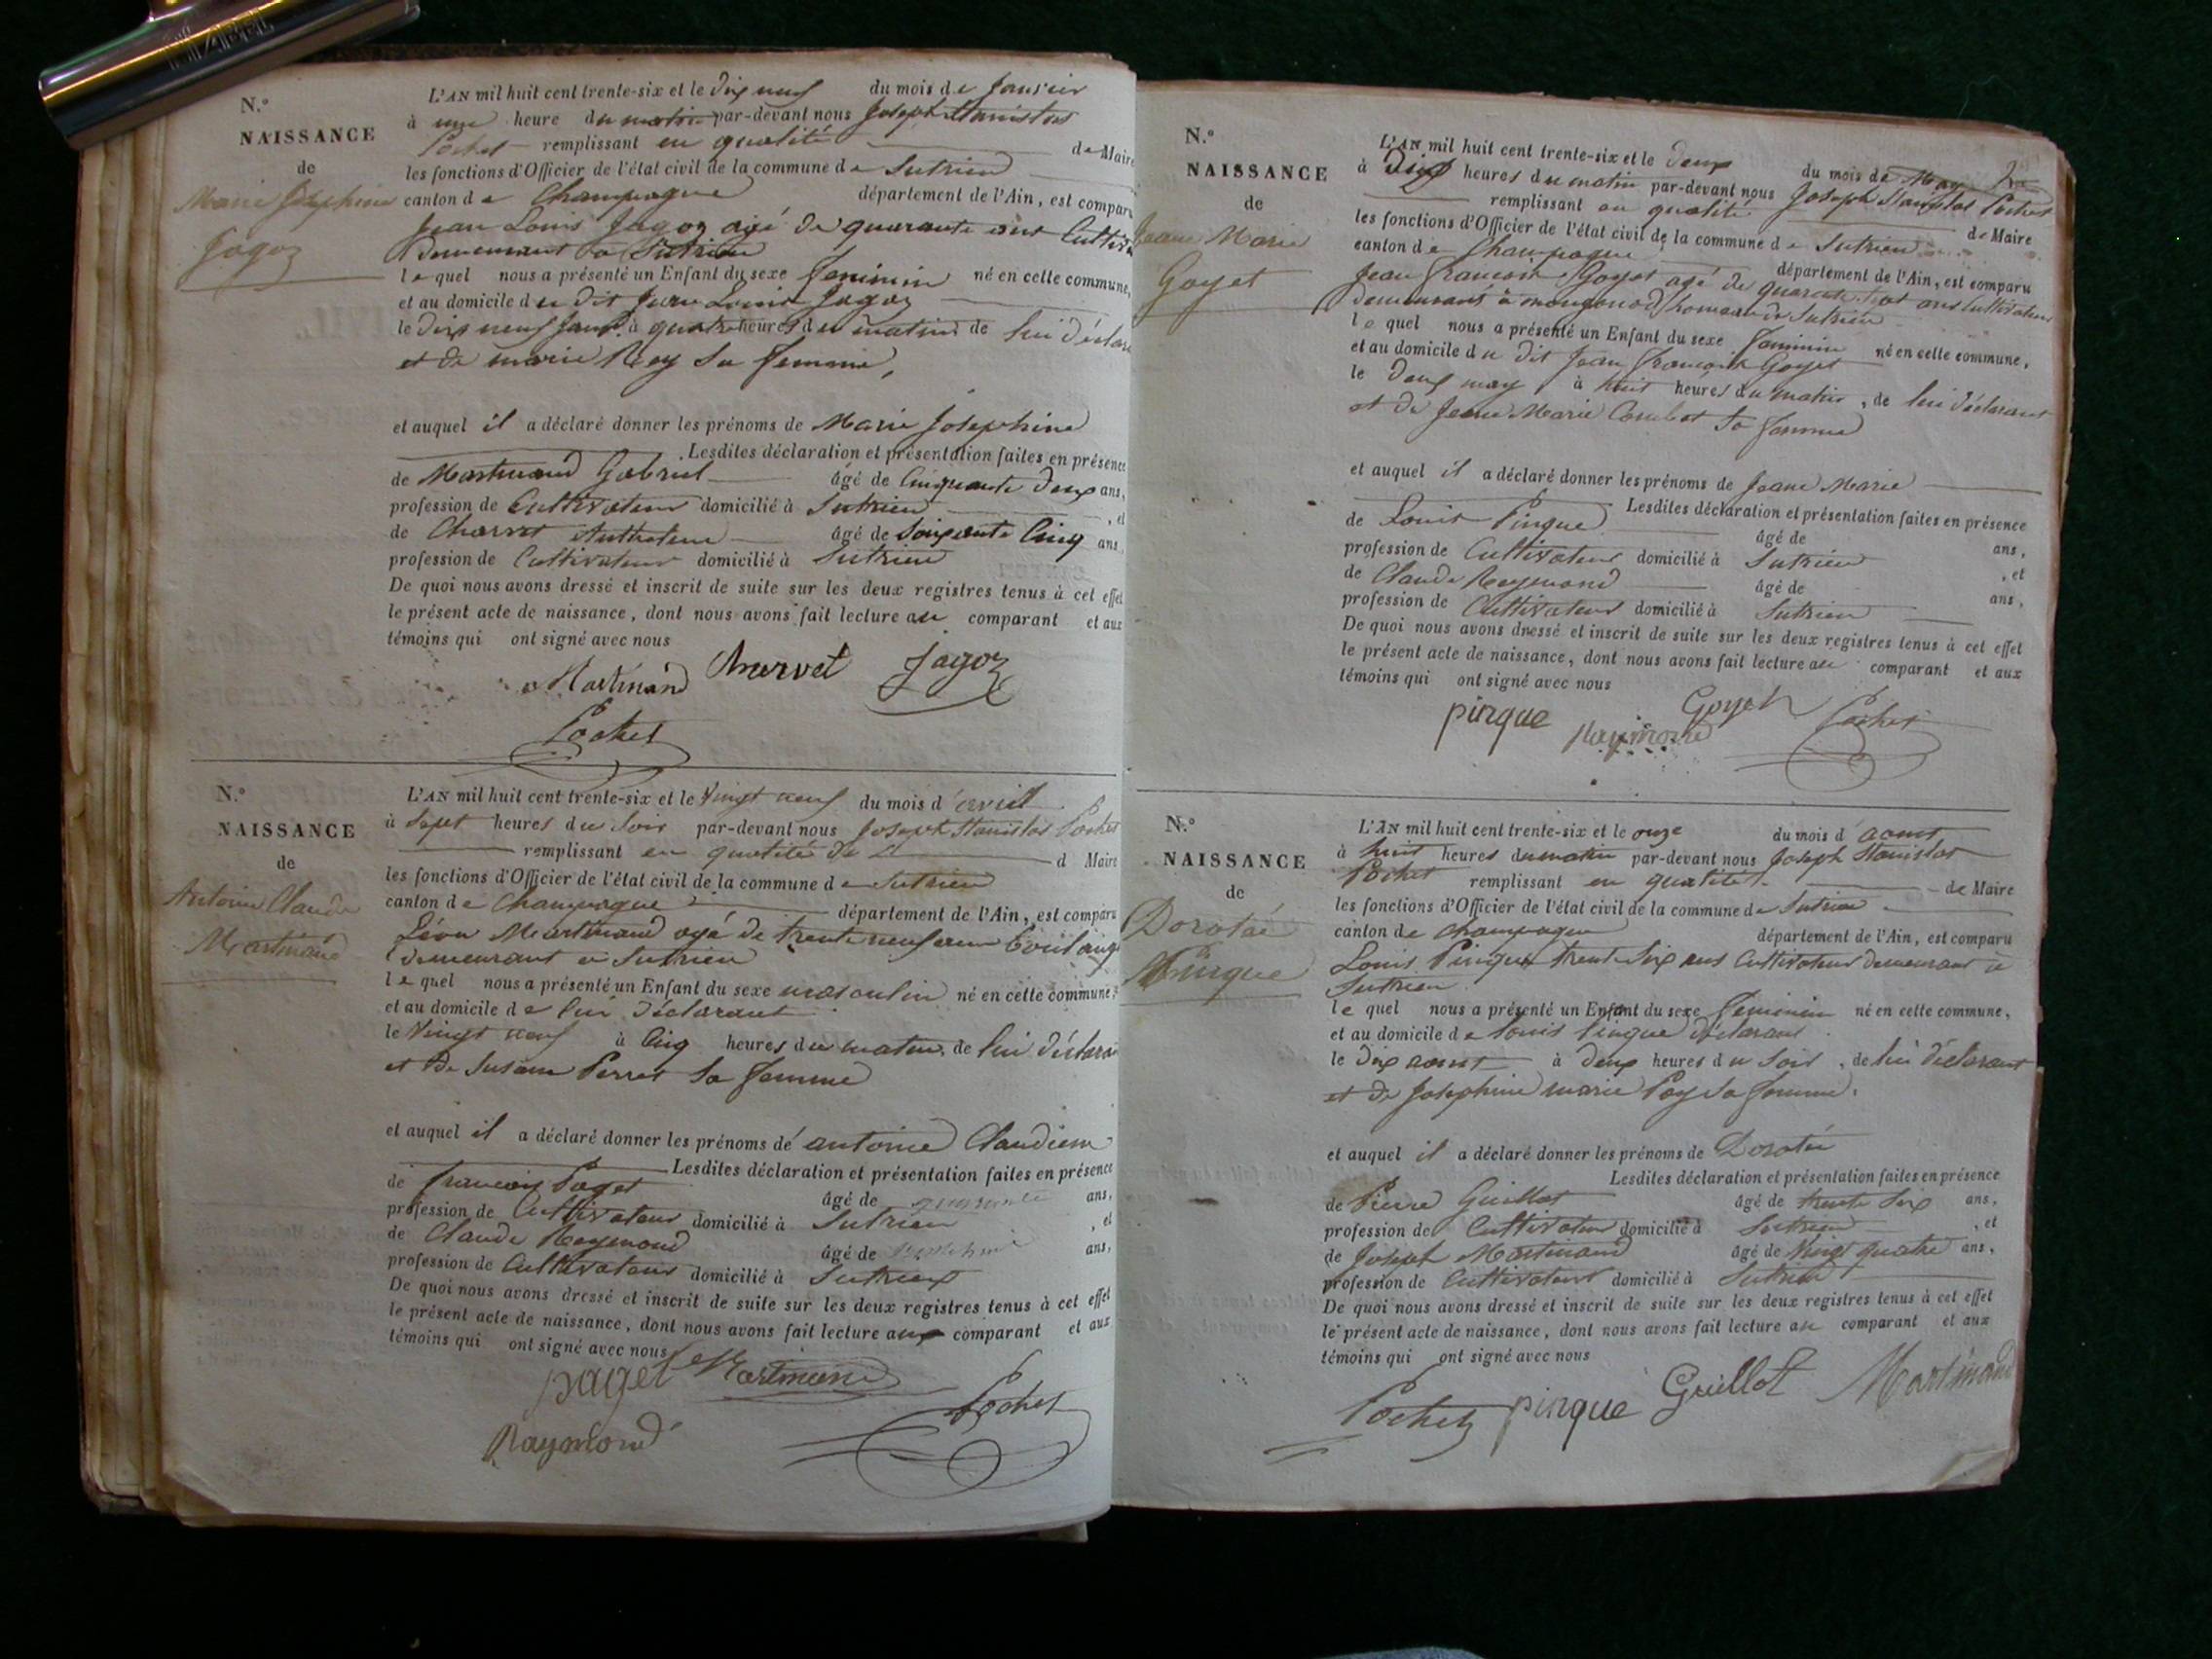 MAPED
N.°
NAISSANCE
de
Marie Josephine
Jagoz
L'AN mil huit cent trente-six et le dix neuf du mois de Janvier
à une heure du matin par-devant nous Joseph Stanislas
Pochet remplissant en qualité de Maire
les fonctions d'Officier de l'état civil de la commune de Sutrieu
canton de Champagne département de l'Ain, est comparu
Jean Louis Jagoz agé de quarante ans Cultiv
demeurant à Sutrieu
lequel nous a présenté un Enfant du sexe feminin né en cette commune,
et au domicile du dit Jean Louis Jagoz
le dix neuf Janv. à quatre heures du matin de lui déclara
et de marie Rey sa femme,
et auquel il a déclaré donner les prénoms de Marie Josephine
Lesdites déclaration et présentation faites en présence
de Martinand Gabriel âgé de Cinquante deux ans,
profession de Cultivateur domicilié à Sutrieu , et
de Charvet Anthelme âgé de Soixante Cinq ans
profession de Cultivateur domicilié à Sutrieu
De quoi nous avons dressé et inscrit de suite sur les deux registres tenus à cet effet
le présent acte de naissance, dont nous avons fait lecture au comparant et aux
témoins qui ont signé avec nous
Martinand Charvet Jagoz
Pochet
N.°
NAISSANCE
de
Antoine Claude
Martinand
L'AN mil huit cent trente-six et le Vingt neuf du mois d'avril
à Sept heures du Soir par-devant nous Joseph Stanislas Pochet
remplissant en qualité de d Maire
les fonctions d'Officier de l'état civil de la commune de Sutrieu
canton de Champagne département de l'Ain, est comparu
Léon Martinand agé de trente neuf ans boulang
demeurant à Sutrieu
lequel nous a présenté un Enfant du sexe masculin né en cette commune,
et au domicile de lui déclarant
le Vingt neuf à Cinq heures du matin, de lui déclara
et de Susane Perret Sa femme
et auquel il a déclaré donner les prénoms de antoine Claudien
Lesdites déclaration et présentation faites en présence
de françois Paget âgé de quarante ans,
profession de Cultivateur domicilié à Sutrieu , et
de Claude Reymond âgé de ans,
profession de Cultivateur domicilié à Sutrieux
De quoi nous avons dressé et inscrit de suite sur les deux registres tenus à cet effet
le présent acte de naissance, dont nous avons fait lecture aux comparant et aux
témoins qui ont signé avec nous
paget Martinand
Pochet
Raymond
N.°
NAISSANCE
de
Jeane Marie
Goyet
L'AN mil huit cent trente-six et le deux du mois de May
à Dix heures du matin par-devant nous Joseph Stanislas Pochet
remplissant en qualité de Maire
les fonctions d'Officier de l'état civil de la commune de Sutrieu
canton de Champagne département de l'Ain, est comparu
Jean françois Goyet agé de quarante ans Cultivateur
demeurant à de Sutrieu
lequel nous a présenté un Enfant du sexe feminin né en cette commune,
et au domicile du dit Jean françois Goyet
le deux may à huit heures du matin, de lui déclarant
et de Jeane Marie Combet Sa femme
et auquel il a déclaré donner les prénoms de Jeane Marie
Lesdites déclaration et présentation faites en présence
de Louis Pingue âgé de ans,
profession de Cultivateur domicilié à Sutrieu , et
de Claude Reymond âgé de ans,
profession de Cultivateur domicilié à Sutrieu
De quoi nous avons dressé et inscrit de suite sur les deux registres tenus à cet effet
le présent acte de naissance, dont nous avons fait lecture au comparant et aux
témoins qui ont signé avec nous
pingue Raymond Goyet Pochet
N.°
NAISSANCE
de
Dorotée
Pingue
L'AN mil huit cent trente-six et le onze du mois d'aout
à huit heures du matin par-devant nous Joseph Stanislas
Pochet remplissant en qualité de Maire
les fonctions d'Officier de l'état civil de la commune de Sutrieu
canton de Champagne département de l'Ain, est comparu
Louis Pingue trente Six ans Cultivateur demeurant à
Sutrieu
lequel nous a présenté un Enfant du sexe feminin né en cette commune,
et au domicile de Louis Pingue déclarant
le dix aout à deux heures du Soir, de lui déclarant
et de Josephine marie Poy Sa femme.
et auquel il a déclaré donner les prénoms de Dorotée
Lesdites déclaration et présentation faites en présence
de Pierre Guillot âgé de trente Six ans,
profession de Cultivateur domicilié à Sutrieu , et
de Joseph Martinand âgé de Vingt quatre ans,
profession de Cultivateur domicilié à Sutrieu
De quoi nous avons dressé et inscrit de suite sur les deux registres tenus à cet effet
le présent acte de naissance, dont nous avons fait lecture au comparant et aux
témoins qui ont signé avec nous
Pochet pingue Guillot Martinand